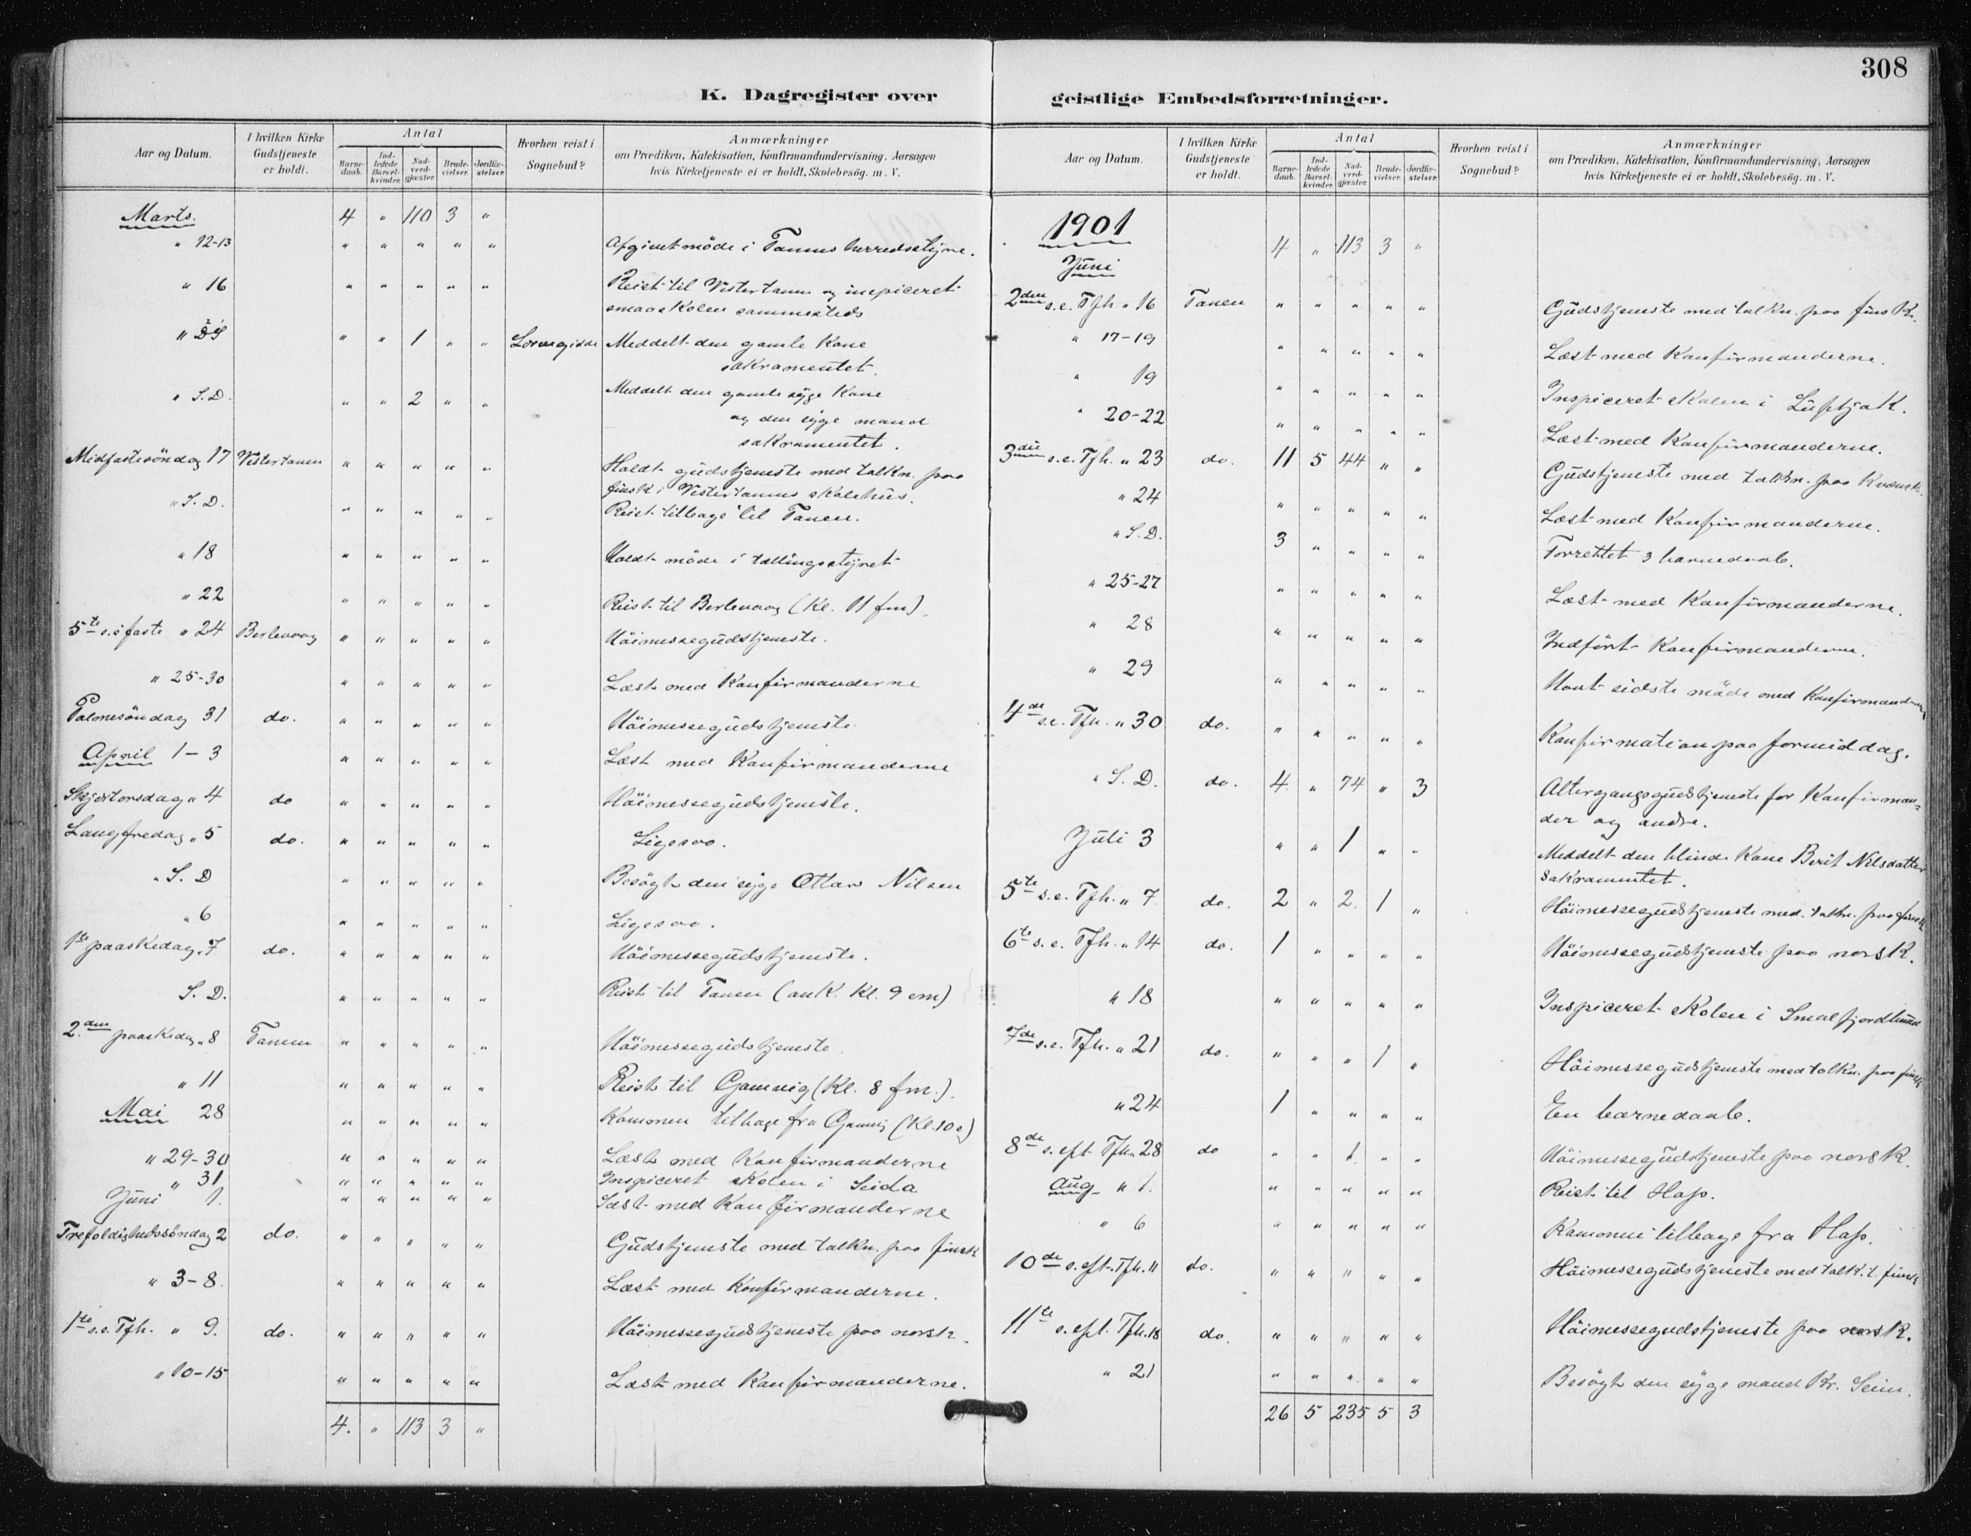 308
K. Dagregister over
Aar og Datum. I hvilken Kirke Gudstjeneste er holdt. Antal Barnedaab. Indledede Barselkvinder. Nadverdgjæster. Brudevielser. Jordfæstelser. Hvorhen reist i Sognebud? Anmærkninger om Prædiken, Katekisation, Konfirmandundervisning, Aarsagen hvis Kirketjeneste ei er holdt, Skolebesøg. m. V.
Marts. 4 " 110 3 "
" 12-13 " " " " " Afgivet møde i Tanens herredsstyre.
" 16 " " " " " Reist til Vestertanen og inspiceret
smaaskolen sammesteds
" " 1 " " Meddelt den gamle Kone
sakramentet.
" S.D. " " 2 " " Meddelt den gamle syge Kone
og den syge mand
sakramentet.
Midfastesöndag 17 Vestertanen " " " " " Holdt gudstjeneste med tolkn. paa
finsk i Vestertanens skolehus.
" S.D. " " " " " Reist tilbage til Tanen.
" 18 " " " " " Holdt möde i tællingsstyret
" 22 " " " " " Reist til Berlevaag (Kl. 11 fm).
5te s. i faste " 24 Berlevaag " " " " " Höimessegudstjeneste.
" 25-30 " " " " " Læst med Konfirmanderne
Palmesöndag 31 do. " " " " " Höimessegudstjeneste.
April 1-3 " " " " " Læst med Konfirmanderne
Skjærtorsdag " 4 do " " " " " Höimessegudstjeneste.
Langfredag " 5 do. " " " " " Ligesaa.
" S.D " " " " " Besögt den syge Ottar Nilsen
" 6 " " " " " Ligesaa.
1ste paaskedag " 7 do. " " " " " Höimessegudstjeneste.
S.D. " " " " " Reist til Tanen (ank. Kl. 9 em)
2.den paaskedag " 8 Tanen " " " " " Höimessegudstjeneste.
" 11 " " " " " Reist til Gamvig (Kl. 8 fm.).
Mai 28 " " " " " Kommen tilbage fra Gamvig (Kl. 10 e)
" 29-30 " " " " " Læst med Konfirmanderne
" 31 " " " " " Inspiceret skolen i Seida
Juni 1. " " " " " Læst med Konfirmanderne
Trefoldighedssöndag 2 do. " " " " " Gudstjeneste med tolkn. paa finsk
" 3-8. " " " " " Læst med Konfirmanderne.
1ste s.e. Tfh. " 9. do. " " " " " Höimessegudstjeneste paa norsk.
" 10-15 " " " " " Læst med Konfirmanderne.
4. " 113 3 "
geistlige Embedsforretninger.
Aar og Datum. I hvilken Kirke Gudstjeneste er holdt. Antal Barnedaab. Indledede Barselkvinder. Nadverdgjæster. Brudevielser. Jordfæstelser. Hvorhen reist i Sognebud? Anmærkninger om Prædiken, Katekisation, Konfirmandundervisning, Aarsagen hvis Kirketjeneste ei er holdt, Skolebesøg. m. V.
1901 4 " 113 3 "
Juni
2den s.e. Tfh. " 16 Tanen " " " " " Gudstjeneste med tolkn. paa finsk.
" 17-19 " " " " " Læst med Konfirmanderne.
" 19 " " " " " Inspiceret skolen i
" 20-22 " " " " " Læst med Konfirmanderne.
3die s.e. Tfh. " 23 do. 11 5 44 " " Gudstjeneste med tolkn. paa Kvænsk.
" 24 " " " " " Læst med Konfirmanderne.
" S.D. 3 " " " " Forrettet 3 barnedaab.
" 25-27 " " " " " Læst med Konfirmanderne.
" 28 " " " " " Indfört Konfirmanderne.
" 29 " " " " " Havt sidste möde med Konfirmanderne
4de s.e. Tfh. " 30 do. " " " " " Konfirmation paa formiddag.
" S.D. do. 4 " 74 " 3 Altergangsgudstjeneste for Konfirman-
der og andre.
Juli 3 " " 1 " " Meddelt den blinde Kone Berit Nilsdatter
sakramentet.
5te s.e. Tfh. " 7. do. 2 " 2. 1 " Höimessegudstjeneste med tolkn. paa finsk
6te s.e. Tfh. " 14 do. 1 " " " " Höimessegudstjeneste paa norsk.
" 18 " " " " " Inspiceret skolen i Smalfjordbund
7de s.e. Tfh. " 21 do. " " " 1 " Höimessegudstjeneste med tolkn. paa finsk
" 24 1 " " " " En barnedaab.
8de s. eft. Tfh. 28 do " " 1. " " Höimessegudstjeneste paa norsk.
Aug " 1. " " " " " Reist til Hop.
" 6 " " " " " Kommen tilbage fra Hop.
10de s. eft. Tfh. 11 do. " " " " " Höimessegudstjeneste med tolk. t. finsk
11te s. eft. Tfh. 18 do. " " " " " Höimessegudstjeneste paa norsk.
" 21 " " " " " Besögt den syge mand Kr. Seim.
26 5 235 5 3